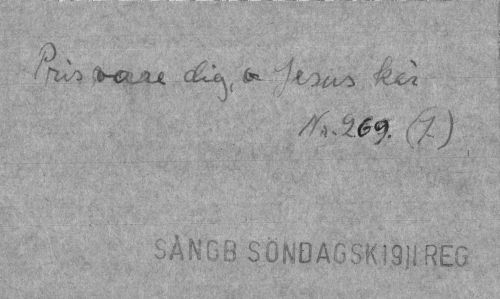 Pris vare dig, o Jesus kär
Nr. 269. (7.)
SÅNGB SÖNDAGSK 1911 REG